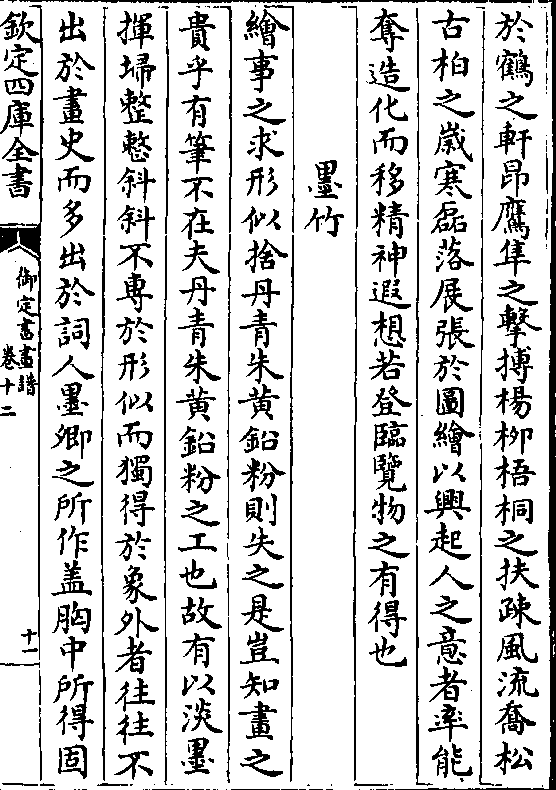 於鶴之軒昂鷹隼之擊搏楊柳梧桐之扶疎風流喬松
古柏之歲寒磊落展張於圖繪以興起人之意者率能
奪造化而移精神遐想若登臨覽物之有得也
墨竹
繪事之求形似捨丹青朱黄鉛粉則失之是豈知畫之
貴乎有筆不在夫丹青朱黄鉛粉之工也故有以淡墨
揮埽整整斜斜不專於形似而獨得於象外者往往不
出於畫史而多出於詞人墨卿之所作盖胸中所得固
欽定四庫全書
御定書畫譜
卷十二
十一